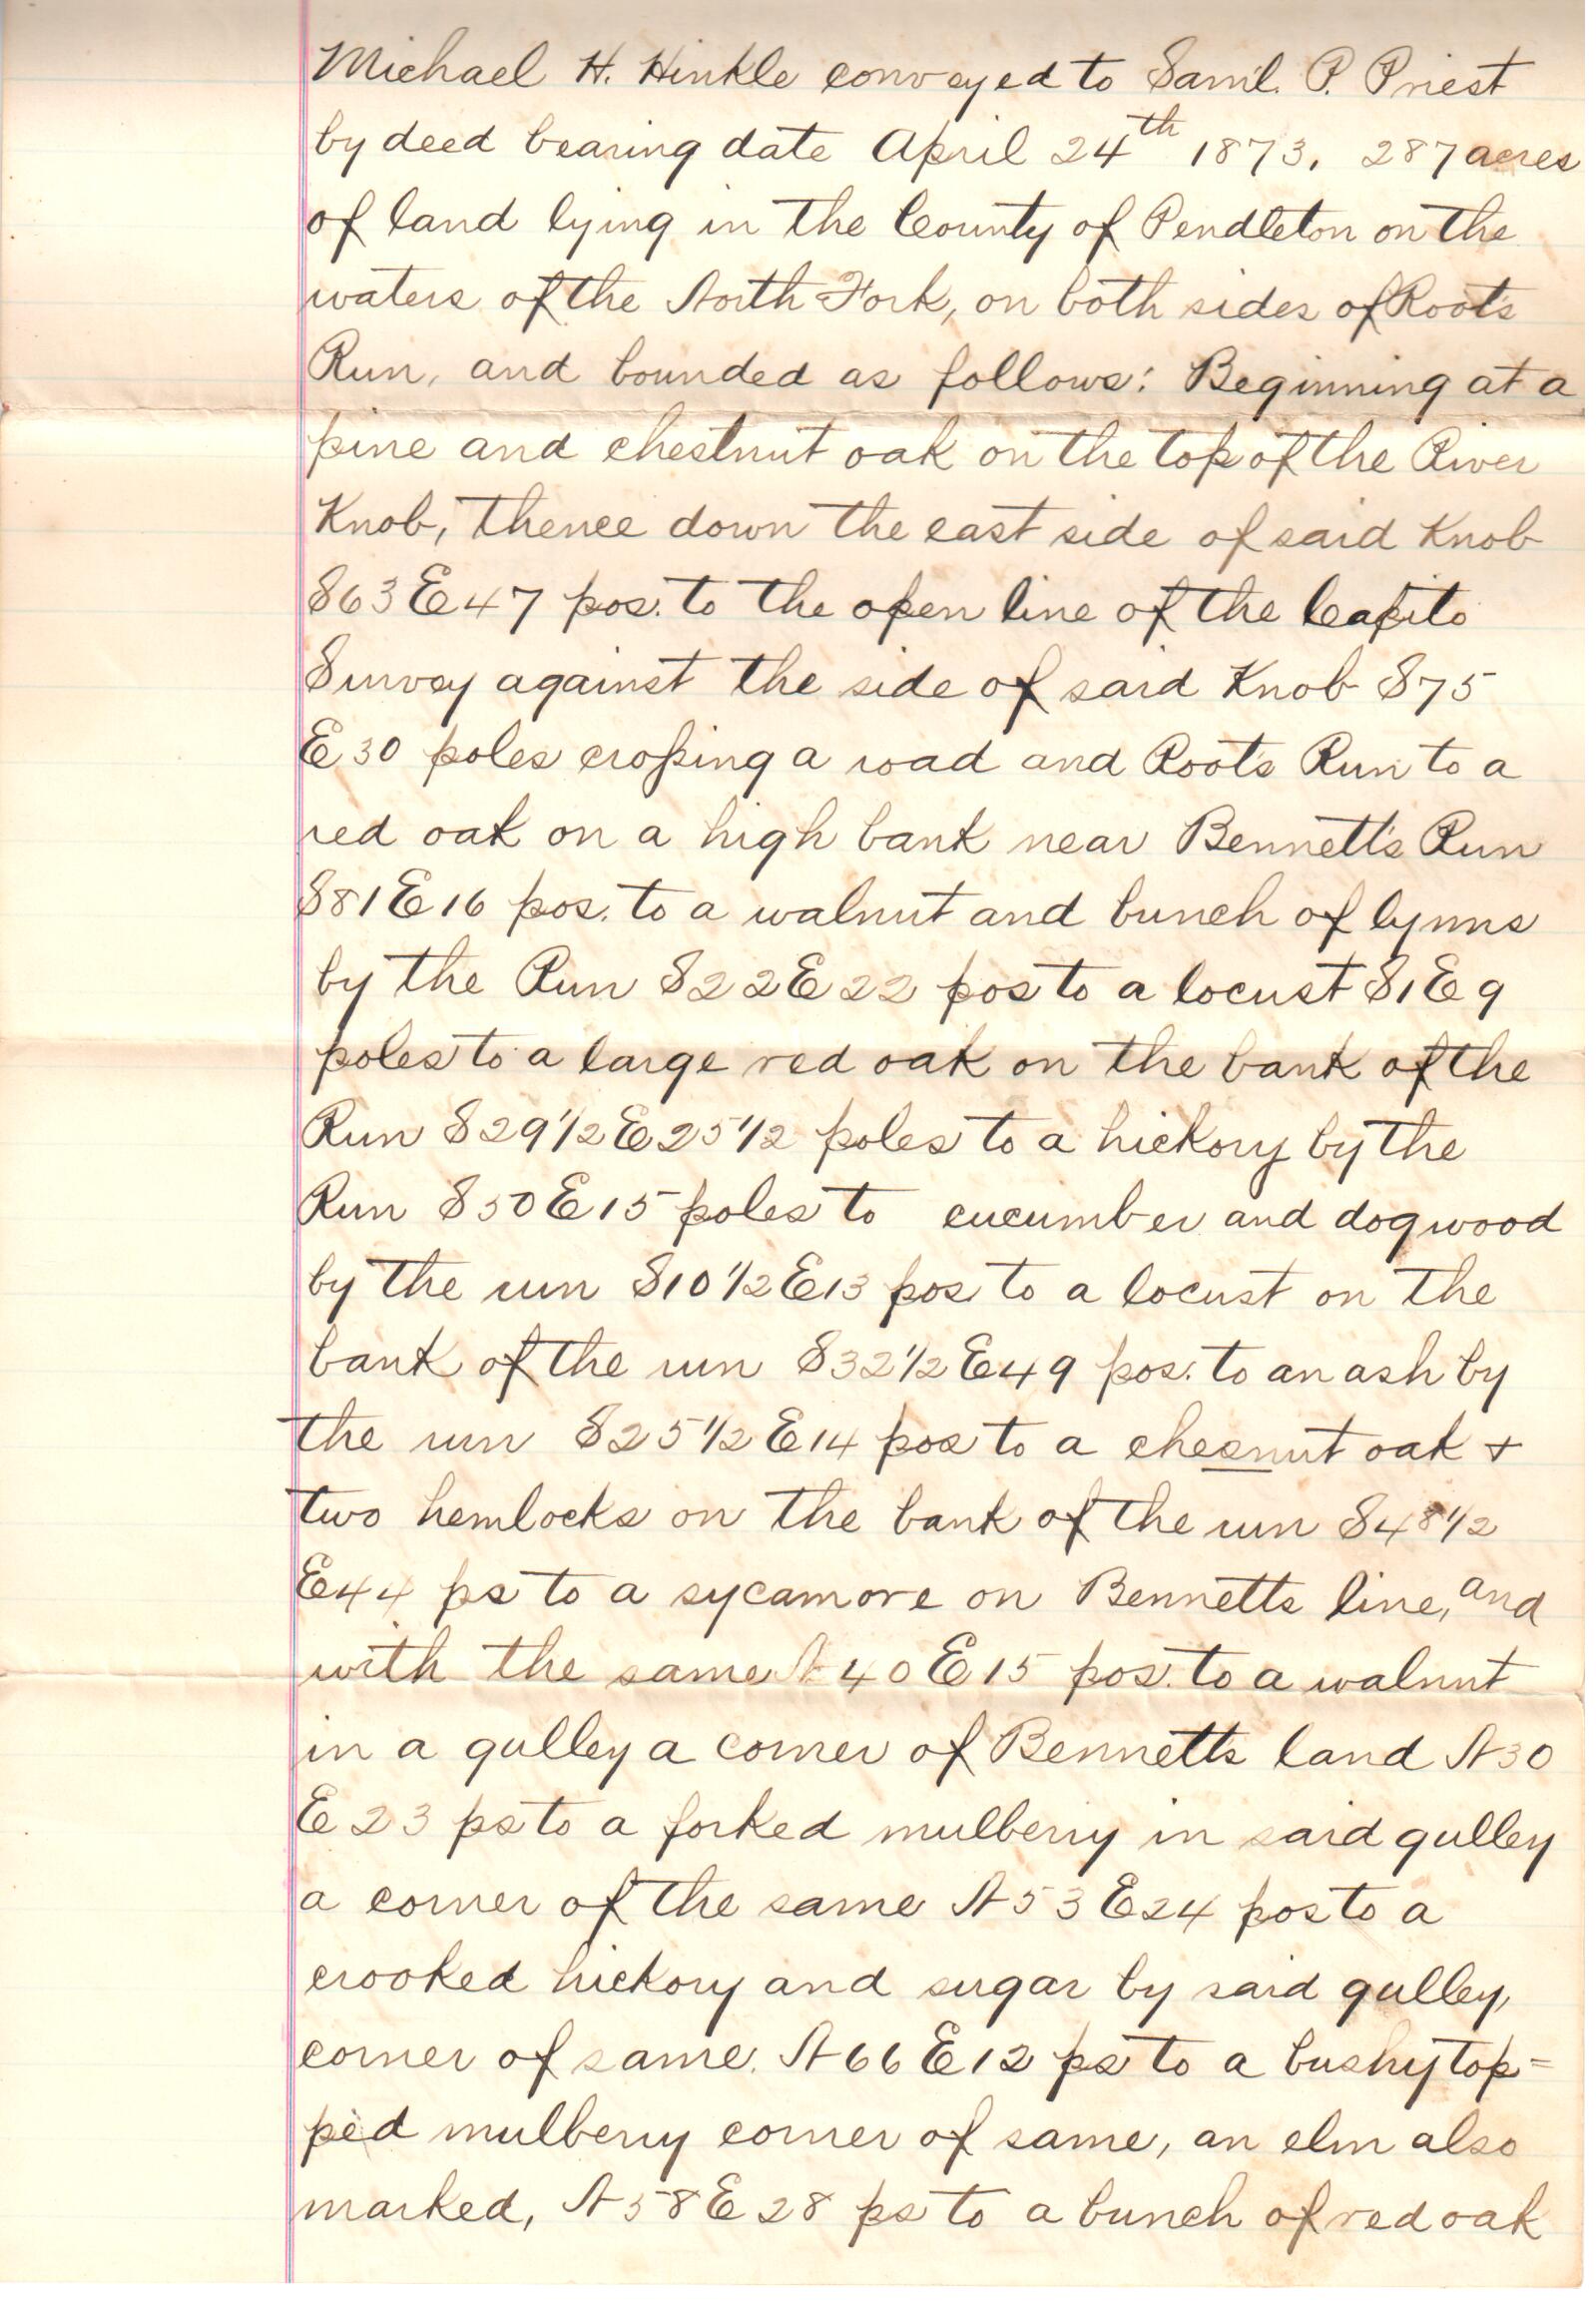 Michael H. Hinkle conveyed to Saml. P. Priest
by deed bearing date April 24th 1873, 287 acres
of land lying in the County of Pendleton on the
waters of the North Fork, on both sides of Roots
Run, and bounded as follows: Beginning at a
pine and chestnut oak on the top of the River
Knob, thence down the east side of said Knob
S63E47 pos. to the open line of the Capito
Survey against the side of said Knob S75
E30 poles crossing a road and Roots Run to a
red oak on a high bank near Bennett's Run
S81E16 pos. to a walnut and bunch of lynns
by the Run S22E22 pos to a locust S1E9
poles to a large red oak on the bank of the
Run S29 1/2E25 1/2 poles to a hickory by the
Run S50E15 poles to cucumber and dogwood
by the run S10 1/2E13 pos to a locust on the
bank of the run S32 1/2E49 pos. to an ash by
the run S25 1/2E14 pos to a chesnut oak +
two hemlocks on the bank of the run S48 1/2
E44 ps to a sycamore on Bennetts line, and
with the same N40E15 pos. to a walnut
in a gulley a corner of Bennetts land N30
E23 ps to a forked mulberry in said gulley
a corner of the same N53E24 pos to a
crooked hickory and sugar by said gulley,
corner of same. N66E12 ps to a bushy top=
ped mulberry corner of same, an elm also
marked, N58E28 ps to a bunch of red oak